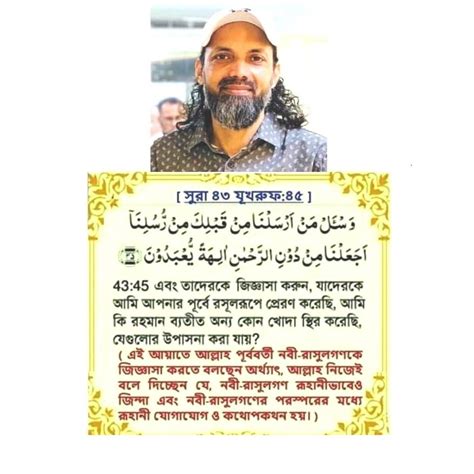 [ সুরা ৪৩ যূখরুফ:৪৫ ]
وَسْـَٔلْ مَنْ اَرْسَلْنَا مِنْ قَبْلِكَ مِنْ رُّسُلِنَاۤ
اَجَعَلْنَا مِنْ دُوْنِ الرَّحْمٰنِ اٰلِهَةً يُّعْبَدُوْنَ
43:45 এবং তাদেরকে জিজ্ঞাসা করুন, যাদেরকে
আমি আপনার পূর্বে রসূলরূপে প্রেরণ করেছি, আমি
কি রহমান ব্যতীত অন্য কোন খোদা স্থির করেছি,
যেগুলোর উপাসনা করা যায়?
( এই আয়াতে আল্লাহ পূর্ববর্তী নবী-রাসুলগণকে
জিজ্ঞাসা করতে বলছেন অর্থ্যাৎ, আল্লাহ নিজেই
বলে দিচ্ছেন যে, নবী-রাসুলগণ রূহানীভাবেও
জিন্দা এবং নবী-রাসুলগণের পরস্পরের মধ্যে
রূহানী যোগাযোগ ও কথোপকথন হয়। )